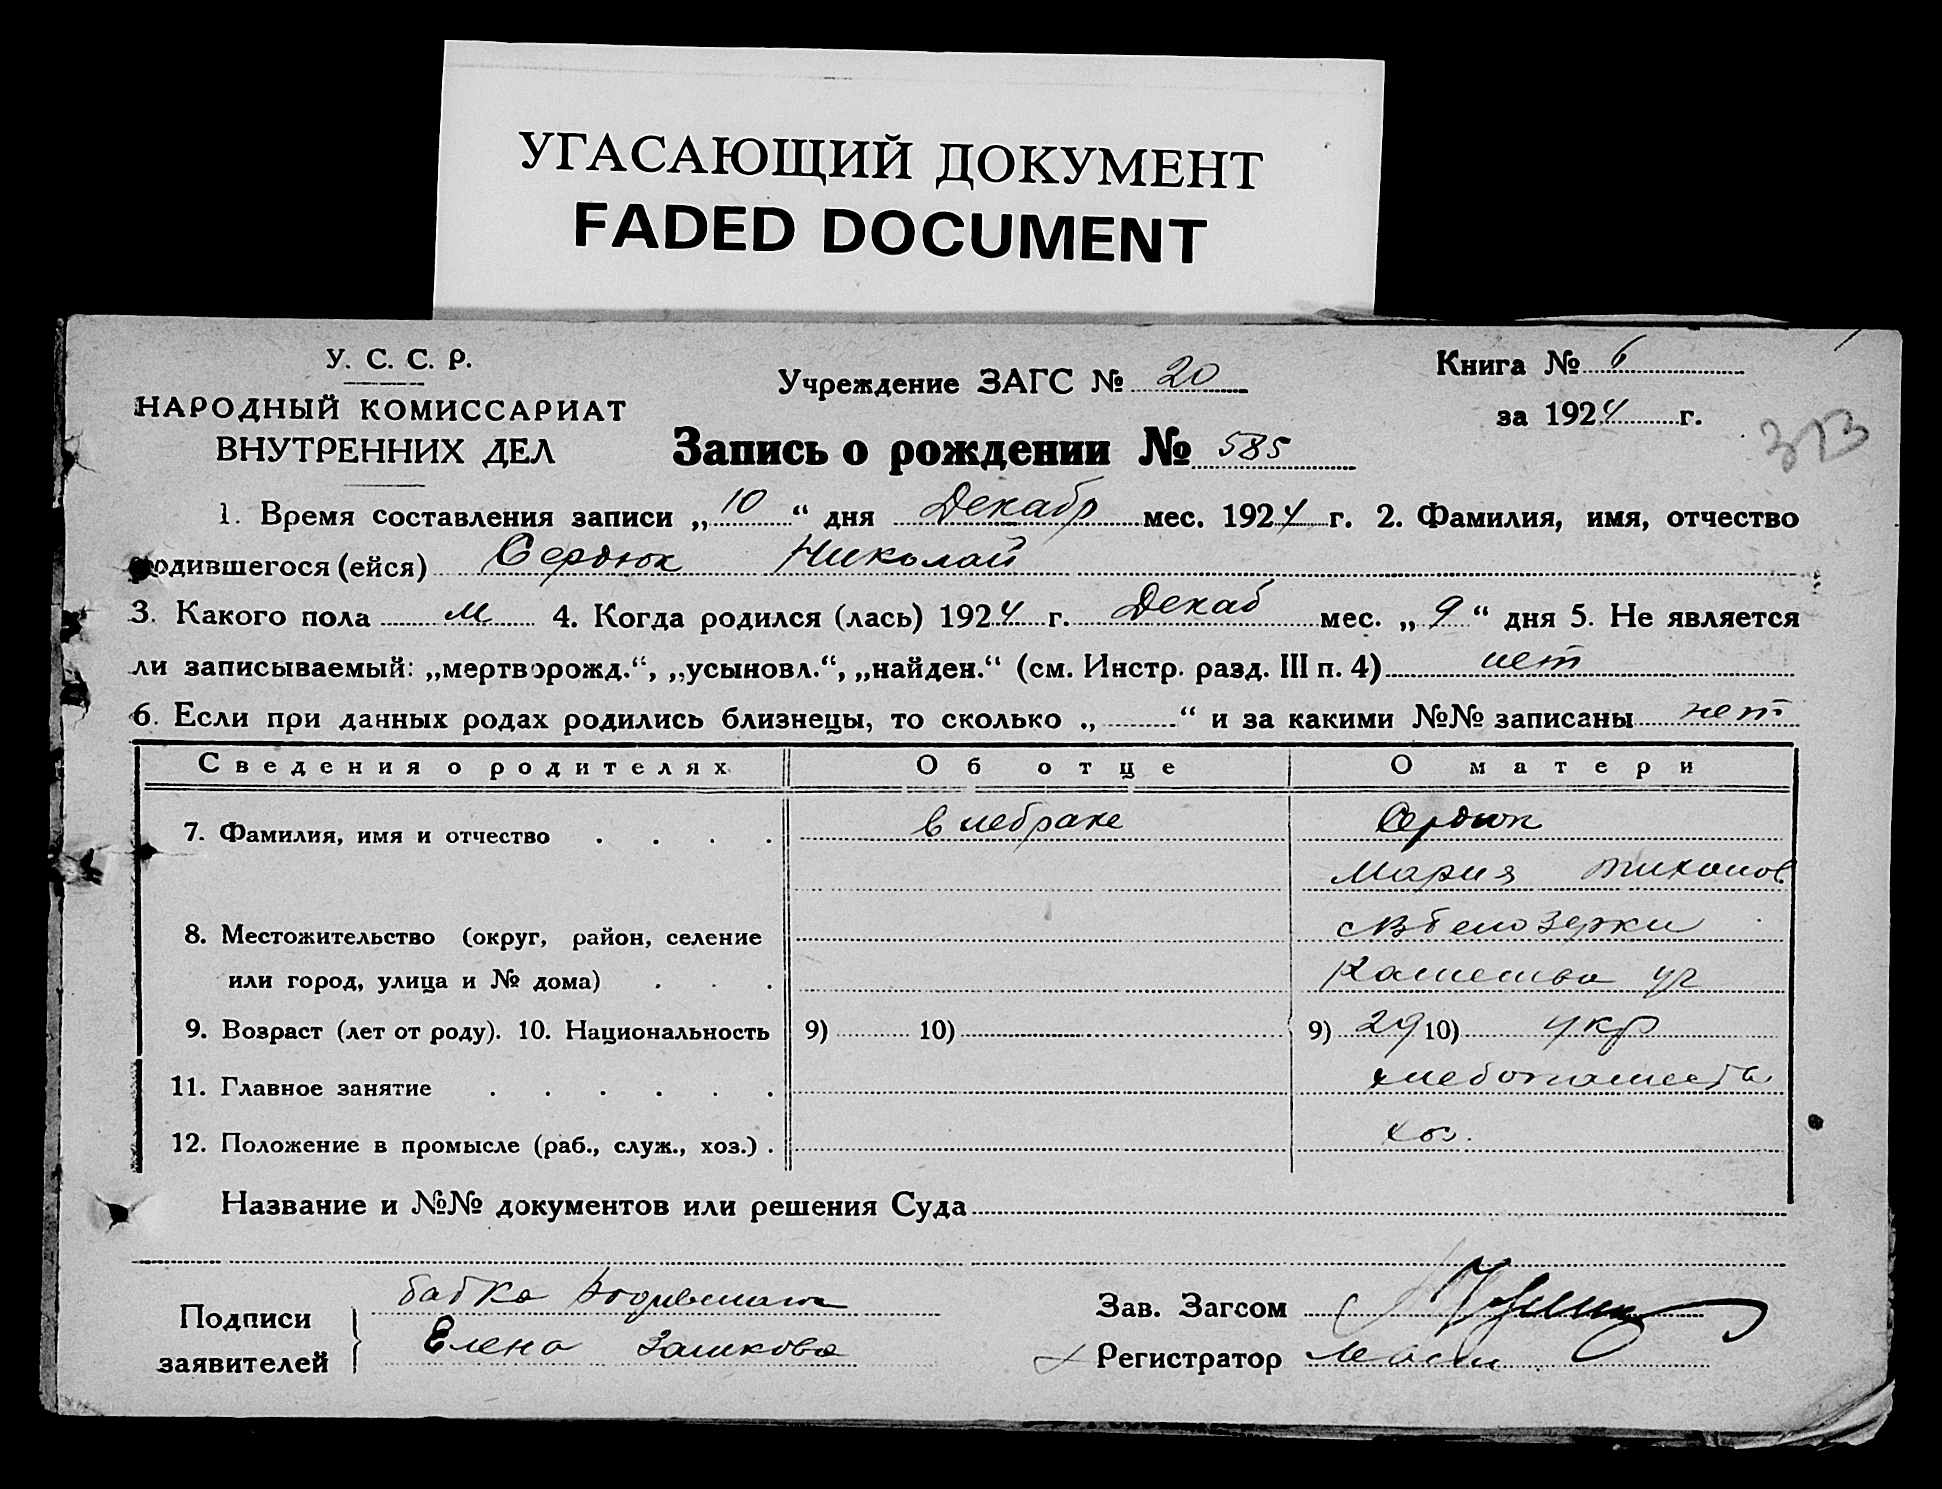 УГАСАЮЩИЙ ДОКУМЕНТ
FADED DOCUMENT
У. С. С. Р.
НАРОДНЫЙ КОМИССАРИАТ
ВНУТРЕННИХ ДЕЛ
Учреждение ЗАГС № 20
Книга № 6
за 1924 г.
313
Запись о рождении № 585
1. Время составления записи „ 10 “ дня Декабр мес. 1924 г. 2. Фамилия, имя, отчество
родившегося (ейся) Сердюк Николай
3. Какого пола м 4. Когда родился (лась) 1924 г. Декаб мес. „ 9 “ дня 5. Не является
ли записываемый: „мертворожд.“, „усыновл.“, „найден.“ (см. Инстр. разд. III п. 4) нет
6. Если при данных родах родились близнецы, то сколько „ “ и за какими №№ записаны нет
Сведения о родителях Об отце О матери
7. Фамилия, имя и отчество . . . . в небраке Сердюк
Мария Тихонов
8. Местожительство (округ, район, селение Белозерки
или город, улица и № дома) . . .
9. Возраст (лет от роду). 10. Национальность 9) 10) 9) 29 10) укр
11. Главное занятие . . . . . . хлебопашест
12. Положение в промысле (раб., служ., хоз.) . хоз.
Название и №№ документов или решения Суда
Подписи
заявителей
бабка
Елена
Зав. Загсом
Регистратор